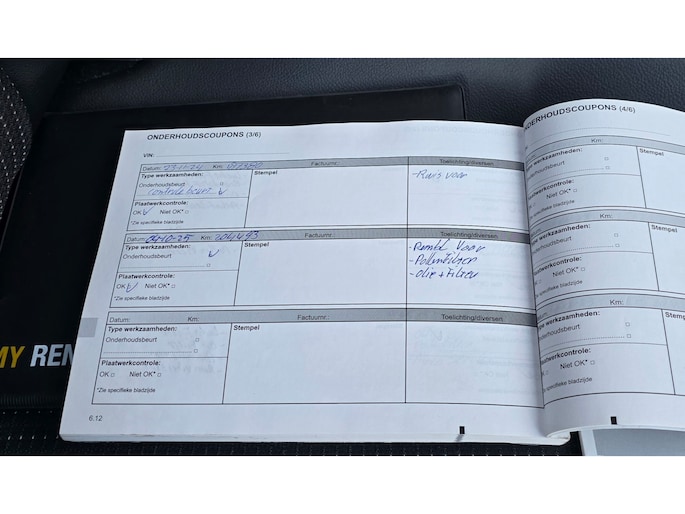 ONDERHOUDSCOUPONS (3/6)
VIN:
Datum: Km: Factuurnr.: Toelichting/diversen:
Type werkzaamheden: Stempel
Onderhoudsbeurt
controle beurt v
Plaatwerkcontrole:
OK v Niet OK*
*Zie specifieke bladzijde
- Ruis voor
Datum: Km: 204493 Factuurnr.: Toelichting/diversen:
Type werkzaamheden: Stempel
Onderhoudsbeurt v
Plaatwerkcontrole:
OK v Niet OK*
*Zie specifieke bladzijde
Voor
- Pollenfilter
- Olie + Filter
Datum: Km: Factuurnr.: Toelichting/diversen:
Type werkzaamheden: Stempel
Onderhoudsbeurt
Plaatwerkcontrole:
OK Niet OK*
*Zie specifieke bladzijde
6.12
ONDERHOUDSCOUPONS (4/6)
Km:
Type werkzaamheden:
Onderhoudsbeurt
Plaatwerkcontrole:
OK Niet OK*
*Zie specifieke bladzijde
Km:
Type werkzaamheden:
Onderhoudsbeurt
Plaatwerkcontrole:
OK Niet OK*
*Zie specifieke bladzijde
Datum: Km:
Type werkzaamheden:
Onderhoudsbeurt
Plaatwerkcontrole:
OK Niet OK*
*Zie specifieke bladzijde
MY REN